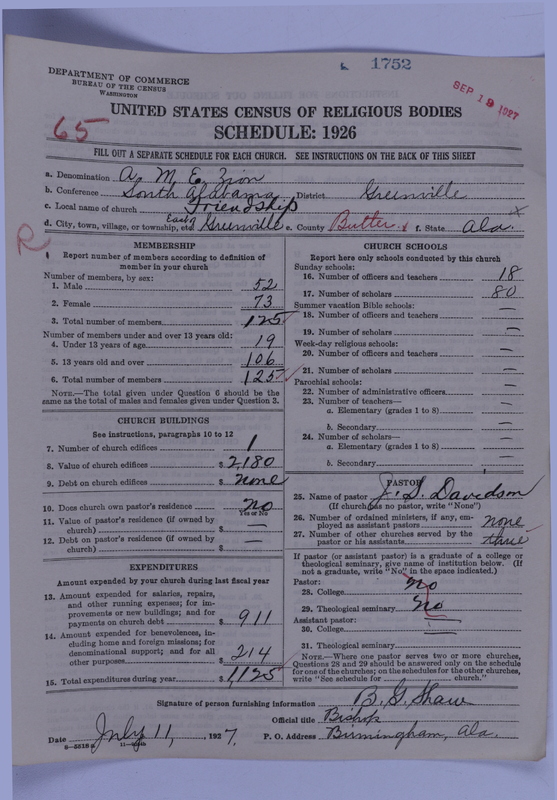 1752
SEP 19 1927
DEPARTMENT OF COMMERCE
BUREAU OF THE CENSUS
WASHINGTON
UNITED STATES CENSUS OF RELIGIOUS BODIES
65
SCHEDULE: 1926
FILL OUT A SEPARATE SCHEDULE FOR EACH CHURCH. SEE INSTRUCTIONS ON THE BACK OF THIS SHEET
a. Denomination A. M. E. Zion
b. Conference South Alabama District Greenville
c. Local name of church Friendship
d. City, town, village, or township, etc. East Greenville e. County Butler f. State Ala. x
R
MEMBERSHIP
Report number of members according to definition of
member in your church
Number of members, by sex:
1. Male 52
2. Female 73
3. Total number of members 125
Number of members under and over 13 years old:
4. Under 13 years of age 19
5. 13 years old and over 106
6. Total number of members 125
NOTE.—The total given under Question 6 should be the
same as the total of males and females given under Question 3.
CHURCH BUILDINGS
See instructions, paragraphs 10 to 12
7. Number of church edifices 1
8. Value of church edifices $ 2,180
9. Debt on church edifices $ none
10. Does church own pastor's residence? No
Yes or No
11. Value of pastor's residence (if owned by
church) $ —
12. Debt on pastor's residence (if owned by
church) $ —
EXPENDITURES
Amount expended by your church during last fiscal year
13. Amount expended for salaries, repairs,
and other running expenses; for im-
provements or new buildings; and for
payments on church debt $ 911
14. Amount expended for benevolences, in-
cluding home and foreign missions; for
denominational support; and for all
other purposes $ 214
15. Total expenditures during year $ 1125
CHURCH SCHOOLS
Report here only schools conducted by this church
Sunday schools:
16. Number of officers and teachers 18
17. Number of scholars 80
Summer vacation Bible schools:
18. Number of officers and teachers —
19. Number of scholars —
Week-day religious schools:
20. Number of officers and teachers —
21. Number of scholars —
Parochial schools:
22. Number of administrative officers —
23. Number of teachers—
a. Elementary (grades 1 to 8) —
b. Secondary —
24. Number of scholars—
a. Elementary (grades 1 to 8) —
b. Secondary —
PASTOR
25. Name of pastor J. S. Davidson
(If church has no pastor, write "None")
26. Number of ordained ministers, if any, em-
ployed as assistant pastors none
27. Number of other churches served by the
pastor or his assistants three
If pastor (or assistant pastor) is a graduate of a college or
theological seminary, give name of institution below. (If
not a graduate, write "No" in the space indicated.)
Pastor:
28. College no
29. Theological seminary No
Assistant pastor:
30. College —
31. Theological seminary
NOTE.—Where one pastor serves two or more churches,
Questions 28 and 29 should be answered only on the schedule
for one of the churches; on the schedules for the other churches,
write "See schedule for church."
Signature of person furnishing information B. G. Shaw
Official title Bishop
Date July 11, 1927. P. O. Address Birmingham, Ala.